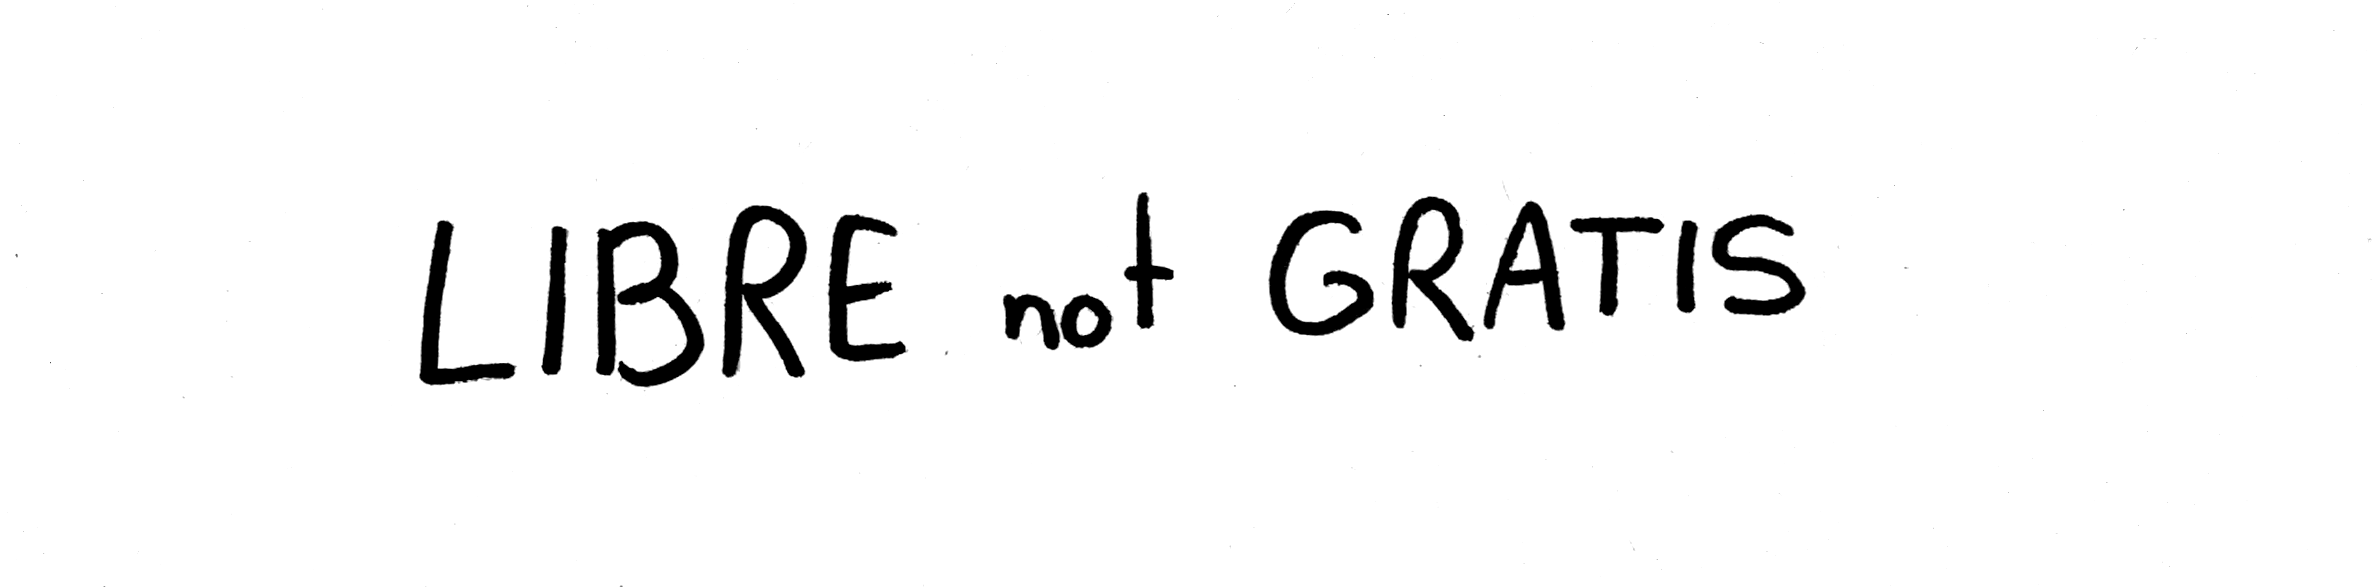 LIBRE not GRATIS